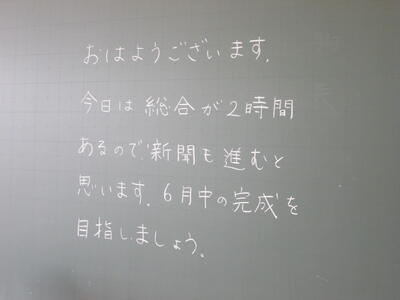 おはようございます.
今日は総合が2時間
あるので、新聞も進むと
思います. 6月中の完成を
目指しましょう。